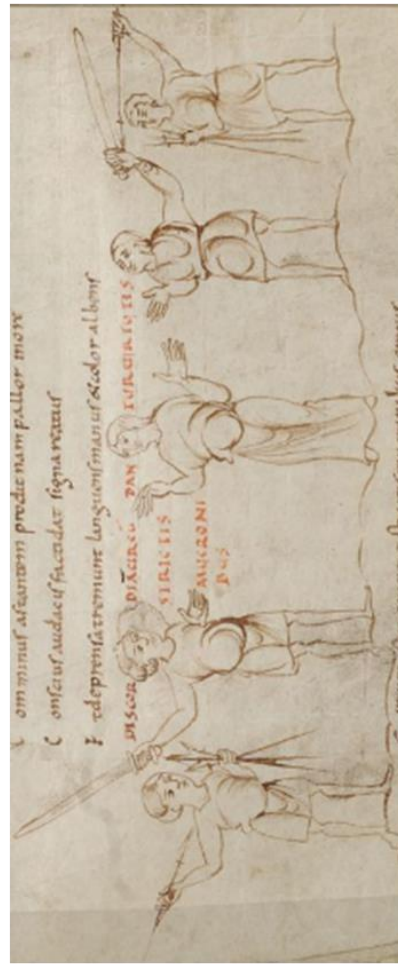 omminus astantem prodit nam pallor inore
Conscius audacis facti dat signa reatus
Et deprensa tremunt languens manus & color albens
DISCOR DIĀ CIRCŪ DAN TUR UIRTUTIS
STRICTIS
MUCRONI
BUS